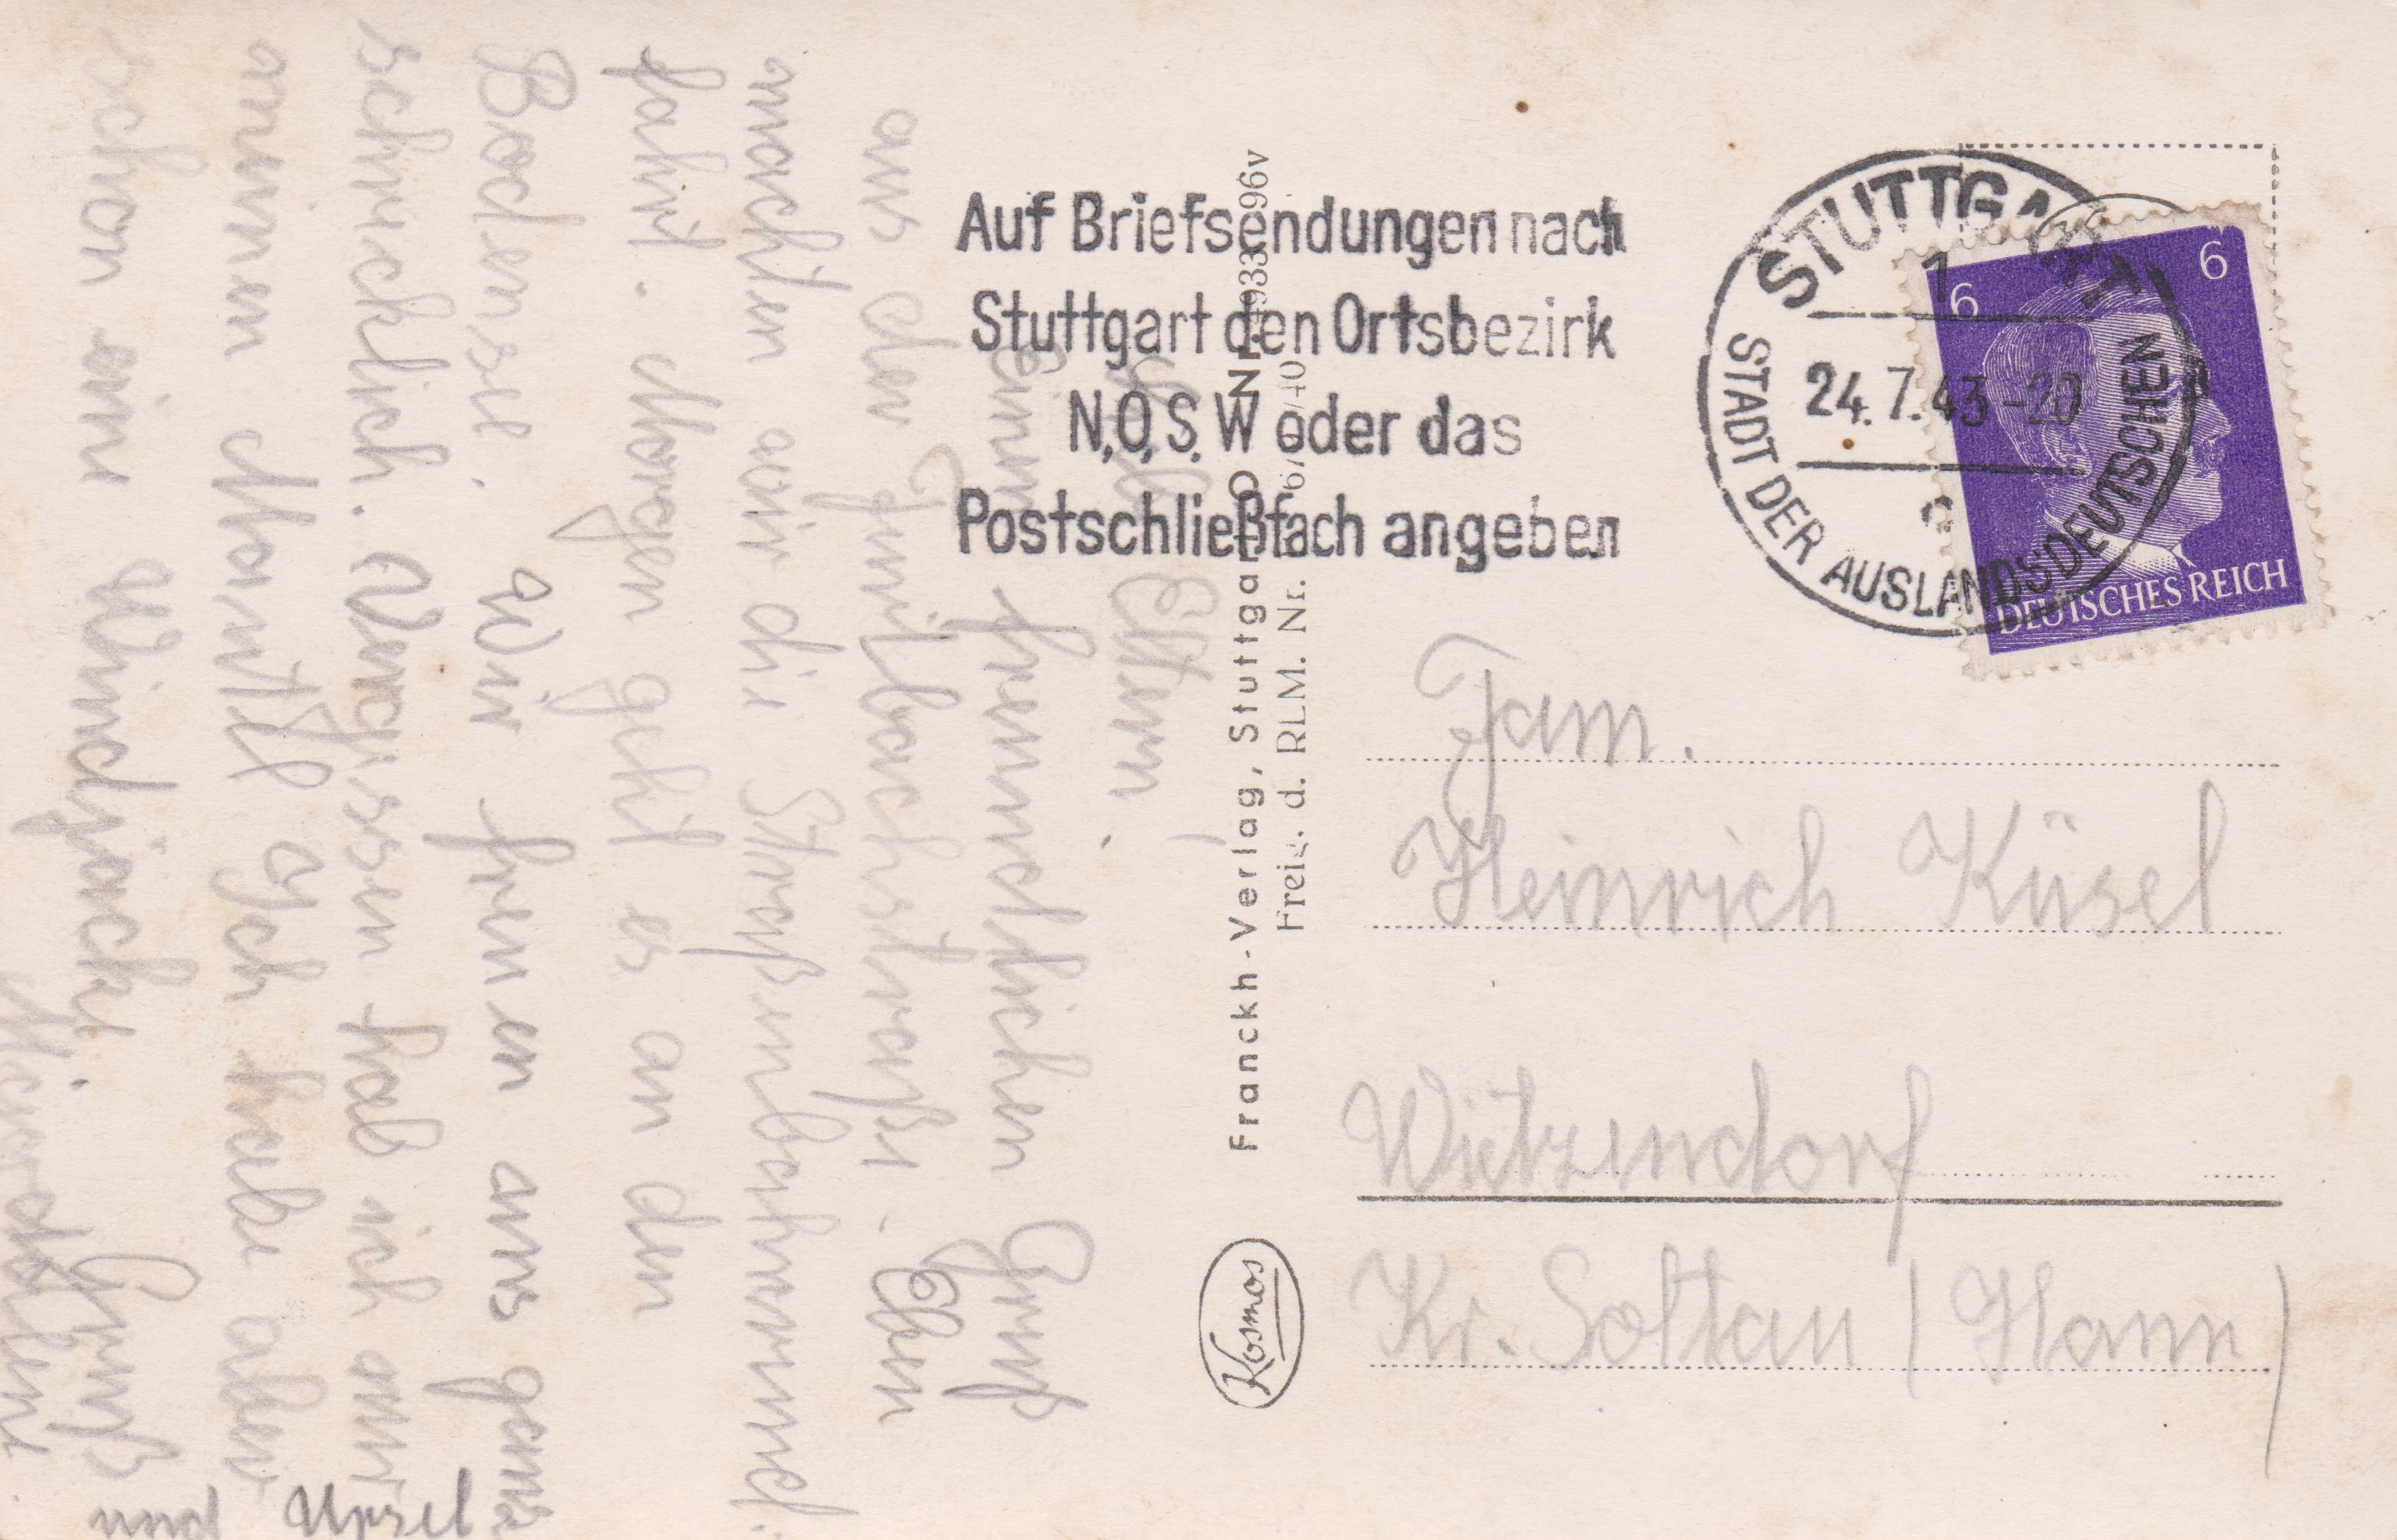 Auf Briefsendungen nach
Stuttgart den Ortsbezirk
N,O,S,W oder das
Postschließfach angeben
STUTTGART
1
24.7.43-20
c
STADT DER AUSLANDSDEUTSCHEN
6
6
DEUTSCHES REICH
Liebe Eltern!
Einen freundlichen Gruß
aus der Jmilbachstraße. Eben
machten wir die Straßenbahnrund-
fahrt. Morgen geht es an den
Bodensee. Wir freuen uns ganz
schrecklich. Vergessen hab ich nur
meinen Mantel Ich habe aber
schon eine Windjacke. Gruß
und Ursel
Franckh-Verlag, Stuttgart-O Nr.
Freig. d. RLM. Nr.
Kosmos
Fam.
Heinrich Küsel
Wietzendorf
Kr. Soltau (Hann)